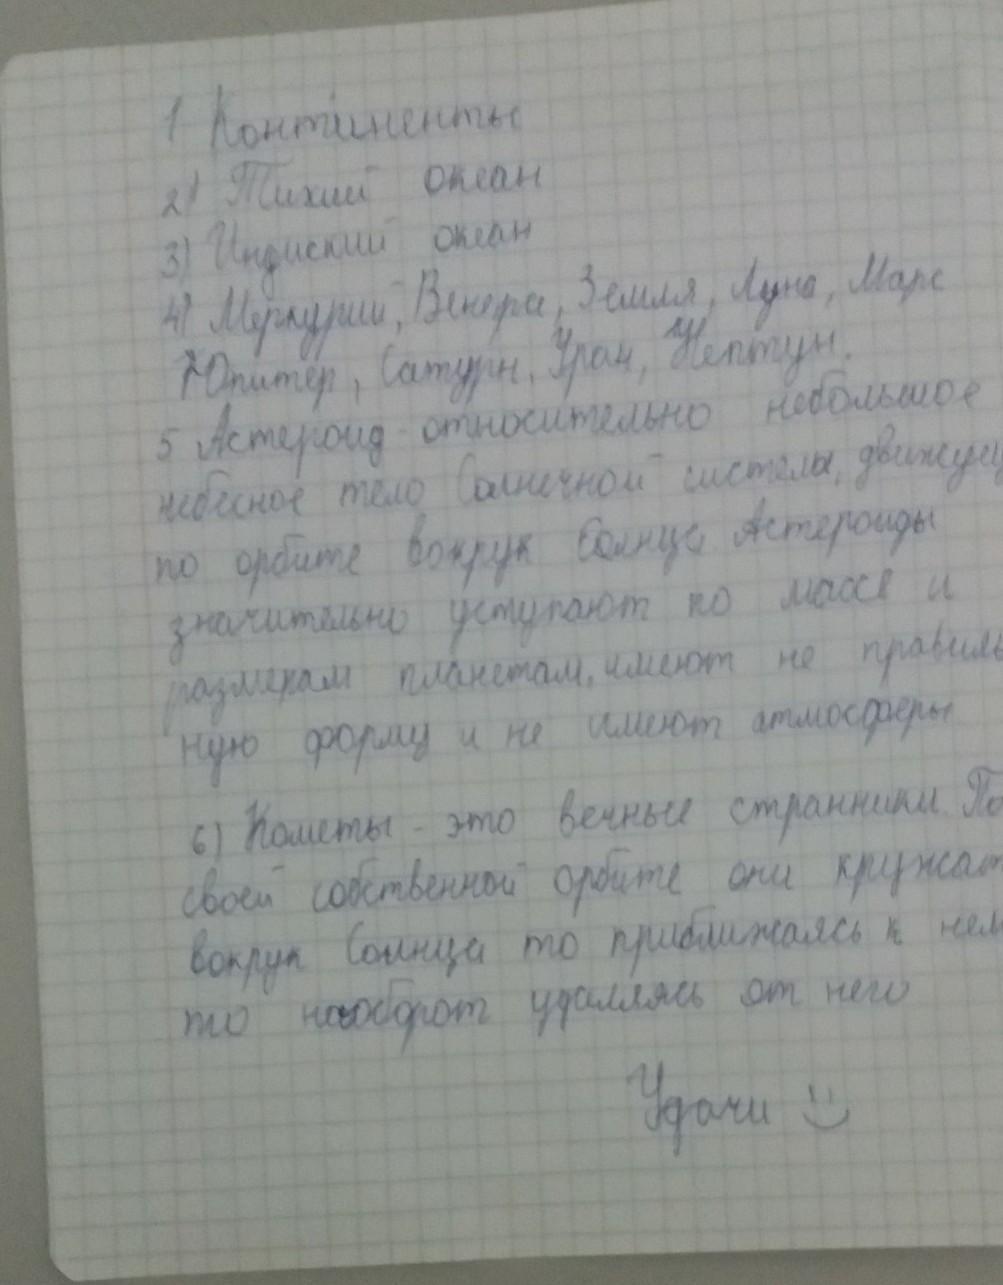 1 Континенты
2) Тихий океан
3) Индиский океан
4) Меркурий, Венера, Земля, Луна, Марс
Юпитер, Сатурн, Уран, Нептун.
5 Астероид - относительно небольшое
небесное тело Солнечной системы, движущ
по орбите вокрук Солнца Астероиды
значительно уступают по массе и
размерам планетам, имеют не правиль
ную форму и не имеют атмосферы
6) Кометы - это вечные странники. По
своей собственной орбите они кружат
вокрук Солнца то приближаясь к нем
то наоборот удаляясь от него
Удачи :)